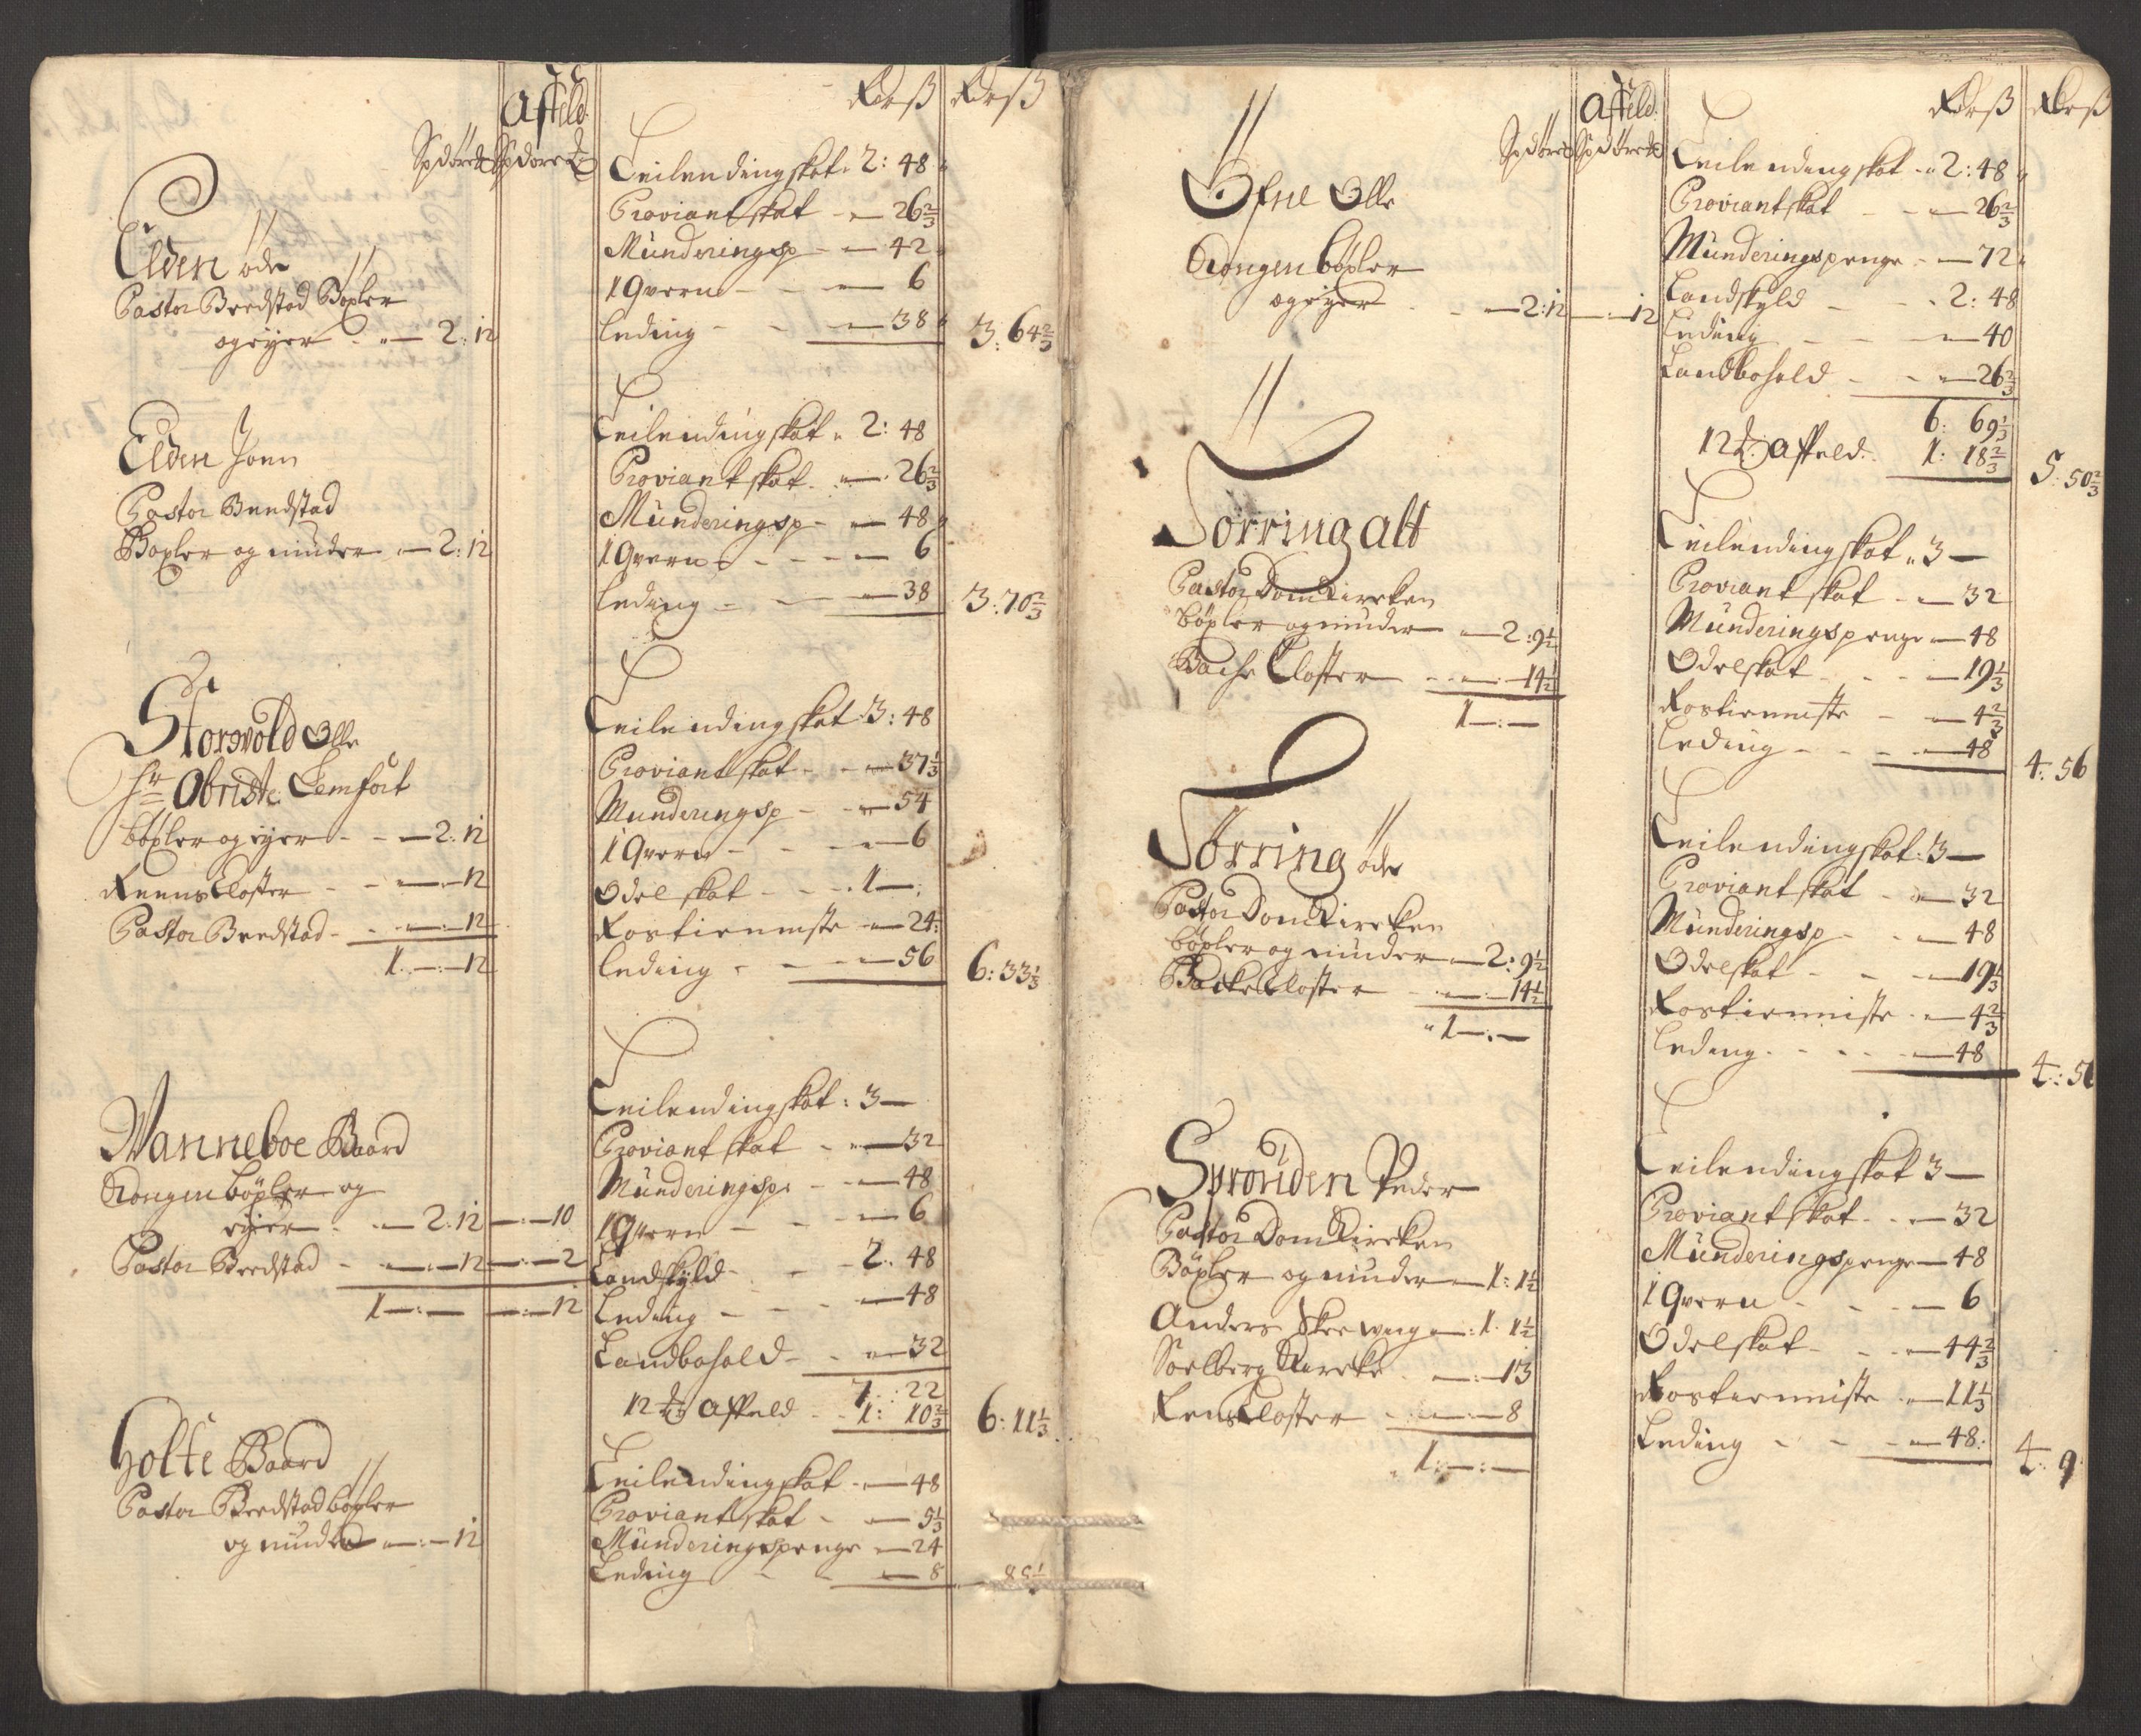 Affeld
Rdrß Rdrß
Spdöre Spdöre
Elden öde
Pastor Bredstad Böxler
og eyer - - 2: 12
Leilendingskat - 2: 48
Proviantskat - - 26 2/3
Münderingsp - - 42
1 Qvern - - 6
Leding - - 38
3: 64 2/3
Elden Joen
Pastor Bredstad
Böxler og minder - 2: 12
Leilendingskat - 2: 48
Proviantskat - - 26 2/3
Münderingsp - - 48
1 Qvern - - 6
Leding - - 38
3: 70 2/3
Storsvold Olle
Hr Obriste Lemfort
böxler og eyer - - 2: 12
Reens Closter - - 12
Pastor Bredstad - - 12
1 - : - 12
Leilendingskat 3: 48
Proviantskat - - 37 1/3
Munderingsp - - 54
1 Qvern - - 6
Odelskat - - 1 -
Rostienniste - 24
Leding - - 56
6: 33 1/3
Wanneboe Baard
Kongen böxler og
eyer - - 2: 12 - : - 10
Pastor Bredstad - - 12 - : - 2
1 - : - - : - 12
Leilendingskat: 3 -
Proviantskat - - 32
Münderingsp - - 48
1 Qvern - - 6
Landskyld - - 2: 48
Leding - - 48
Landbohold - - 32
7: 22
12 Affeld - 1: 10 2/3
6: 11 1/3
Holte Baard
Pastor Bredstad böxler
og minder - : - 12
Leilendingskat - 48
Proviantskat - - 5 1/3
Münderingspenge - 24
Leding - - 8
- 85 1/3
Affeld.
Rdrß Rdrß
Spdöre Spdöre
Ofne Olle
Kongen böxler
og eyer - - 2: 12 - : - 12
Leilendingskat - 2: 48
Proviantskat - - 26 2/3
Münderingspenge - 72
Landskyld - - 2: 48
Leding - - 40
Landbohold - - 26 2/3
6: 69 1/3
12 Affeld. 1: 18 2/3
5: 50 2/3
Torring alt
Pastor Dom Kircken
böxler og minder - 2: 9 1/2
Bache Closter - - 14 1/2
1 - : -
Leilendingskat - 3 -
Proviantskat - - 32
Münderingspenge - 48
Odelskat - - 19 1/3
Rostienniste - - 4 2/3
Leding - - 48
4: 56
Torring öde
Pastor Dom Kircken
böxler og minder - 2: 9 1/2
Backe Closter - - 14 1/2
1 - : -
Leilendingskat: 3 -
Proviantskat - - 32
Münderingsp - - 48
Odelskat - - 19 1/3
Rostienniste - - 4 2/3
Leding - - 48
4: 56
Sprouden Peder
Pastor Dom Kircken
Böxler og minder - 1: 1 1/2
Anders Skeewing - : 1: 1 1/2
Soelberg Kircke - : - 13
Rens Closter - - 8
1 : - : -
Leilendingskat 3 -
Proviantskat - - 32
Münderingspenge - 48
1 Qvern - - 6
Odelskat - - 44 2/3
Rostienniste - 11 1/3
Leding - - 48
4: 9